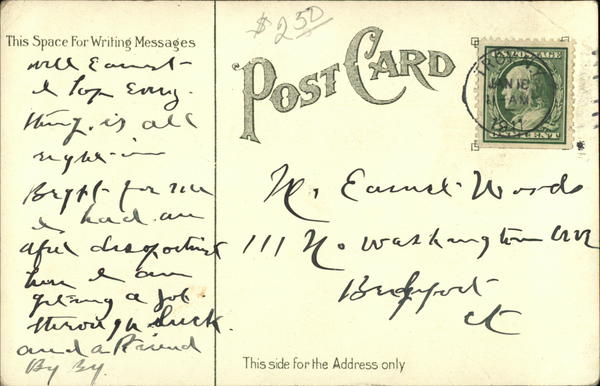 $2.50
This Space For Writing Messages
POST CARD
TROY
JUN 10
AM
1911
well Earnest
I hop Every
thing is all
right in
Brypt for me
I had an
afel disoportment
here I am
geting a job
through luck.
and a friend
By By.
Mr Earnest Woods
111 No Washington Ave
Bridgeport
Ct
This side for the Address only